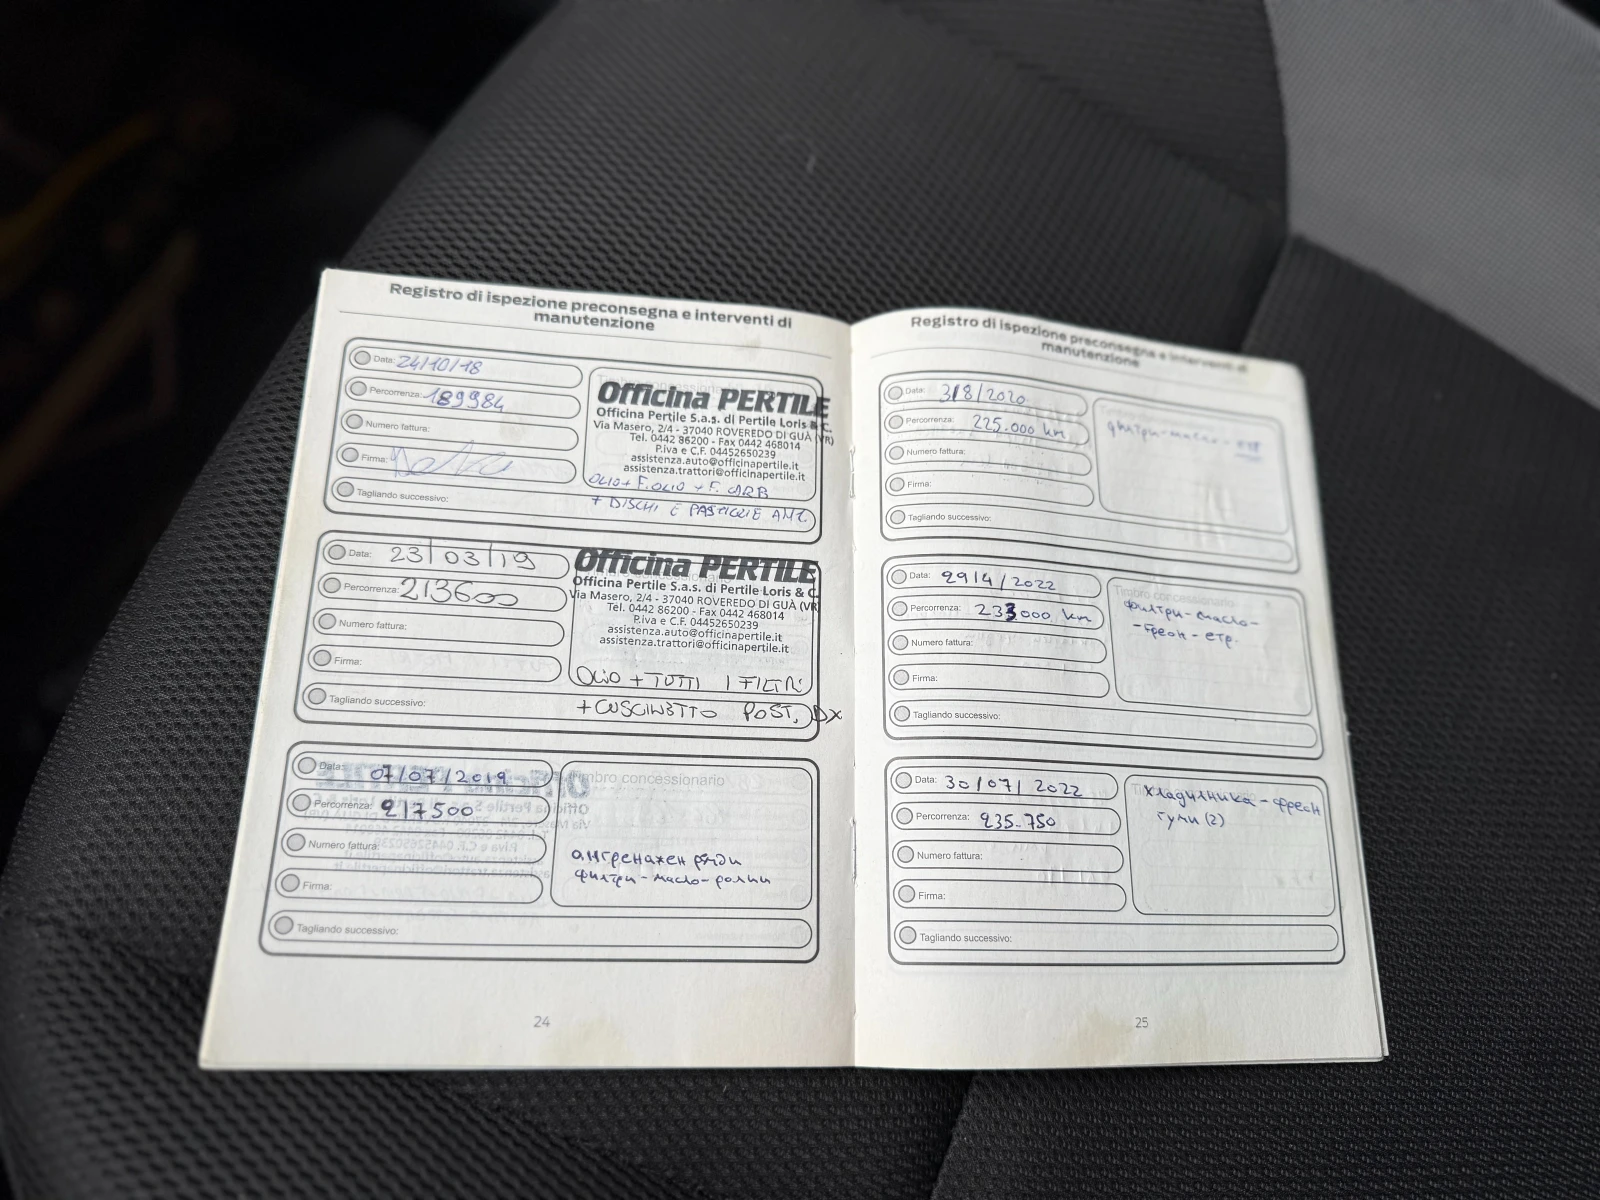 Registro di ispezione preconsegna e interventi di
manutenzione
Data: 24/10/18
Percorrenza: 189984
Numero fattura:
Firma:
Tagliando successivo:
Officina PERTILE
Officina Pertile S.a.s. di Pertile Loris & C.
Via Masero, 2/4 - 37040 ROVEREDO DI GUÀ (VR)
Tel. 0442 86200 - Fax 0442 468014
P.iva e C.F. 04452650239
assistenza.auto@officinapertile.it
assistenza.trattori@officinapertile.it
OLIO + F.OLIO + F. CARB
+ DISCHI E PASTIGLIE ANT.
Data: 23/03/19
Percorrenza: 213600
Numero fattura:
Firma:
Tagliando successivo:
Officina PERTILE
Officina Pertile S.a.s. di Pertile Loris & C.
Via Masero, 2/4 - 37040 ROVEREDO DI GUÀ (VR
Tel. 0442 86200 - Fax 0442 468014
P.iva e C.F. 04452650239
assistenza.auto@officinapertile.it
assistenza.trattori@officinapertile.it
OLIO + TUTTI I FILTRI
+ CUSCINETTO POST. DX
Data: 07/07/2019
Percorrenza: 217500
Numero fattura:
Firma:
Tagliando successivo:
Timbro concessionario
ангренажен ряди
филтри - масло - ролки
24
Registro di ispezione preconsegna e interventi di
manutenzione
Data: 3/8/2020
Percorrenza: 225.000 km
Numero fattura:
Firma:
Tagliando successivo:
филтри - масло -
Data: 29/4/2022
Percorrenza: 233000 km
Numero fattura:
Firma:
Tagliando successivo:
Timbro concessionario
филтри - масло -
- фреон - етр.
Data: 30/07/2022
Percorrenza: 235.750
Numero fattura:
Firma:
Tagliando successivo:
хладилника - фреон
гуми (2)
25